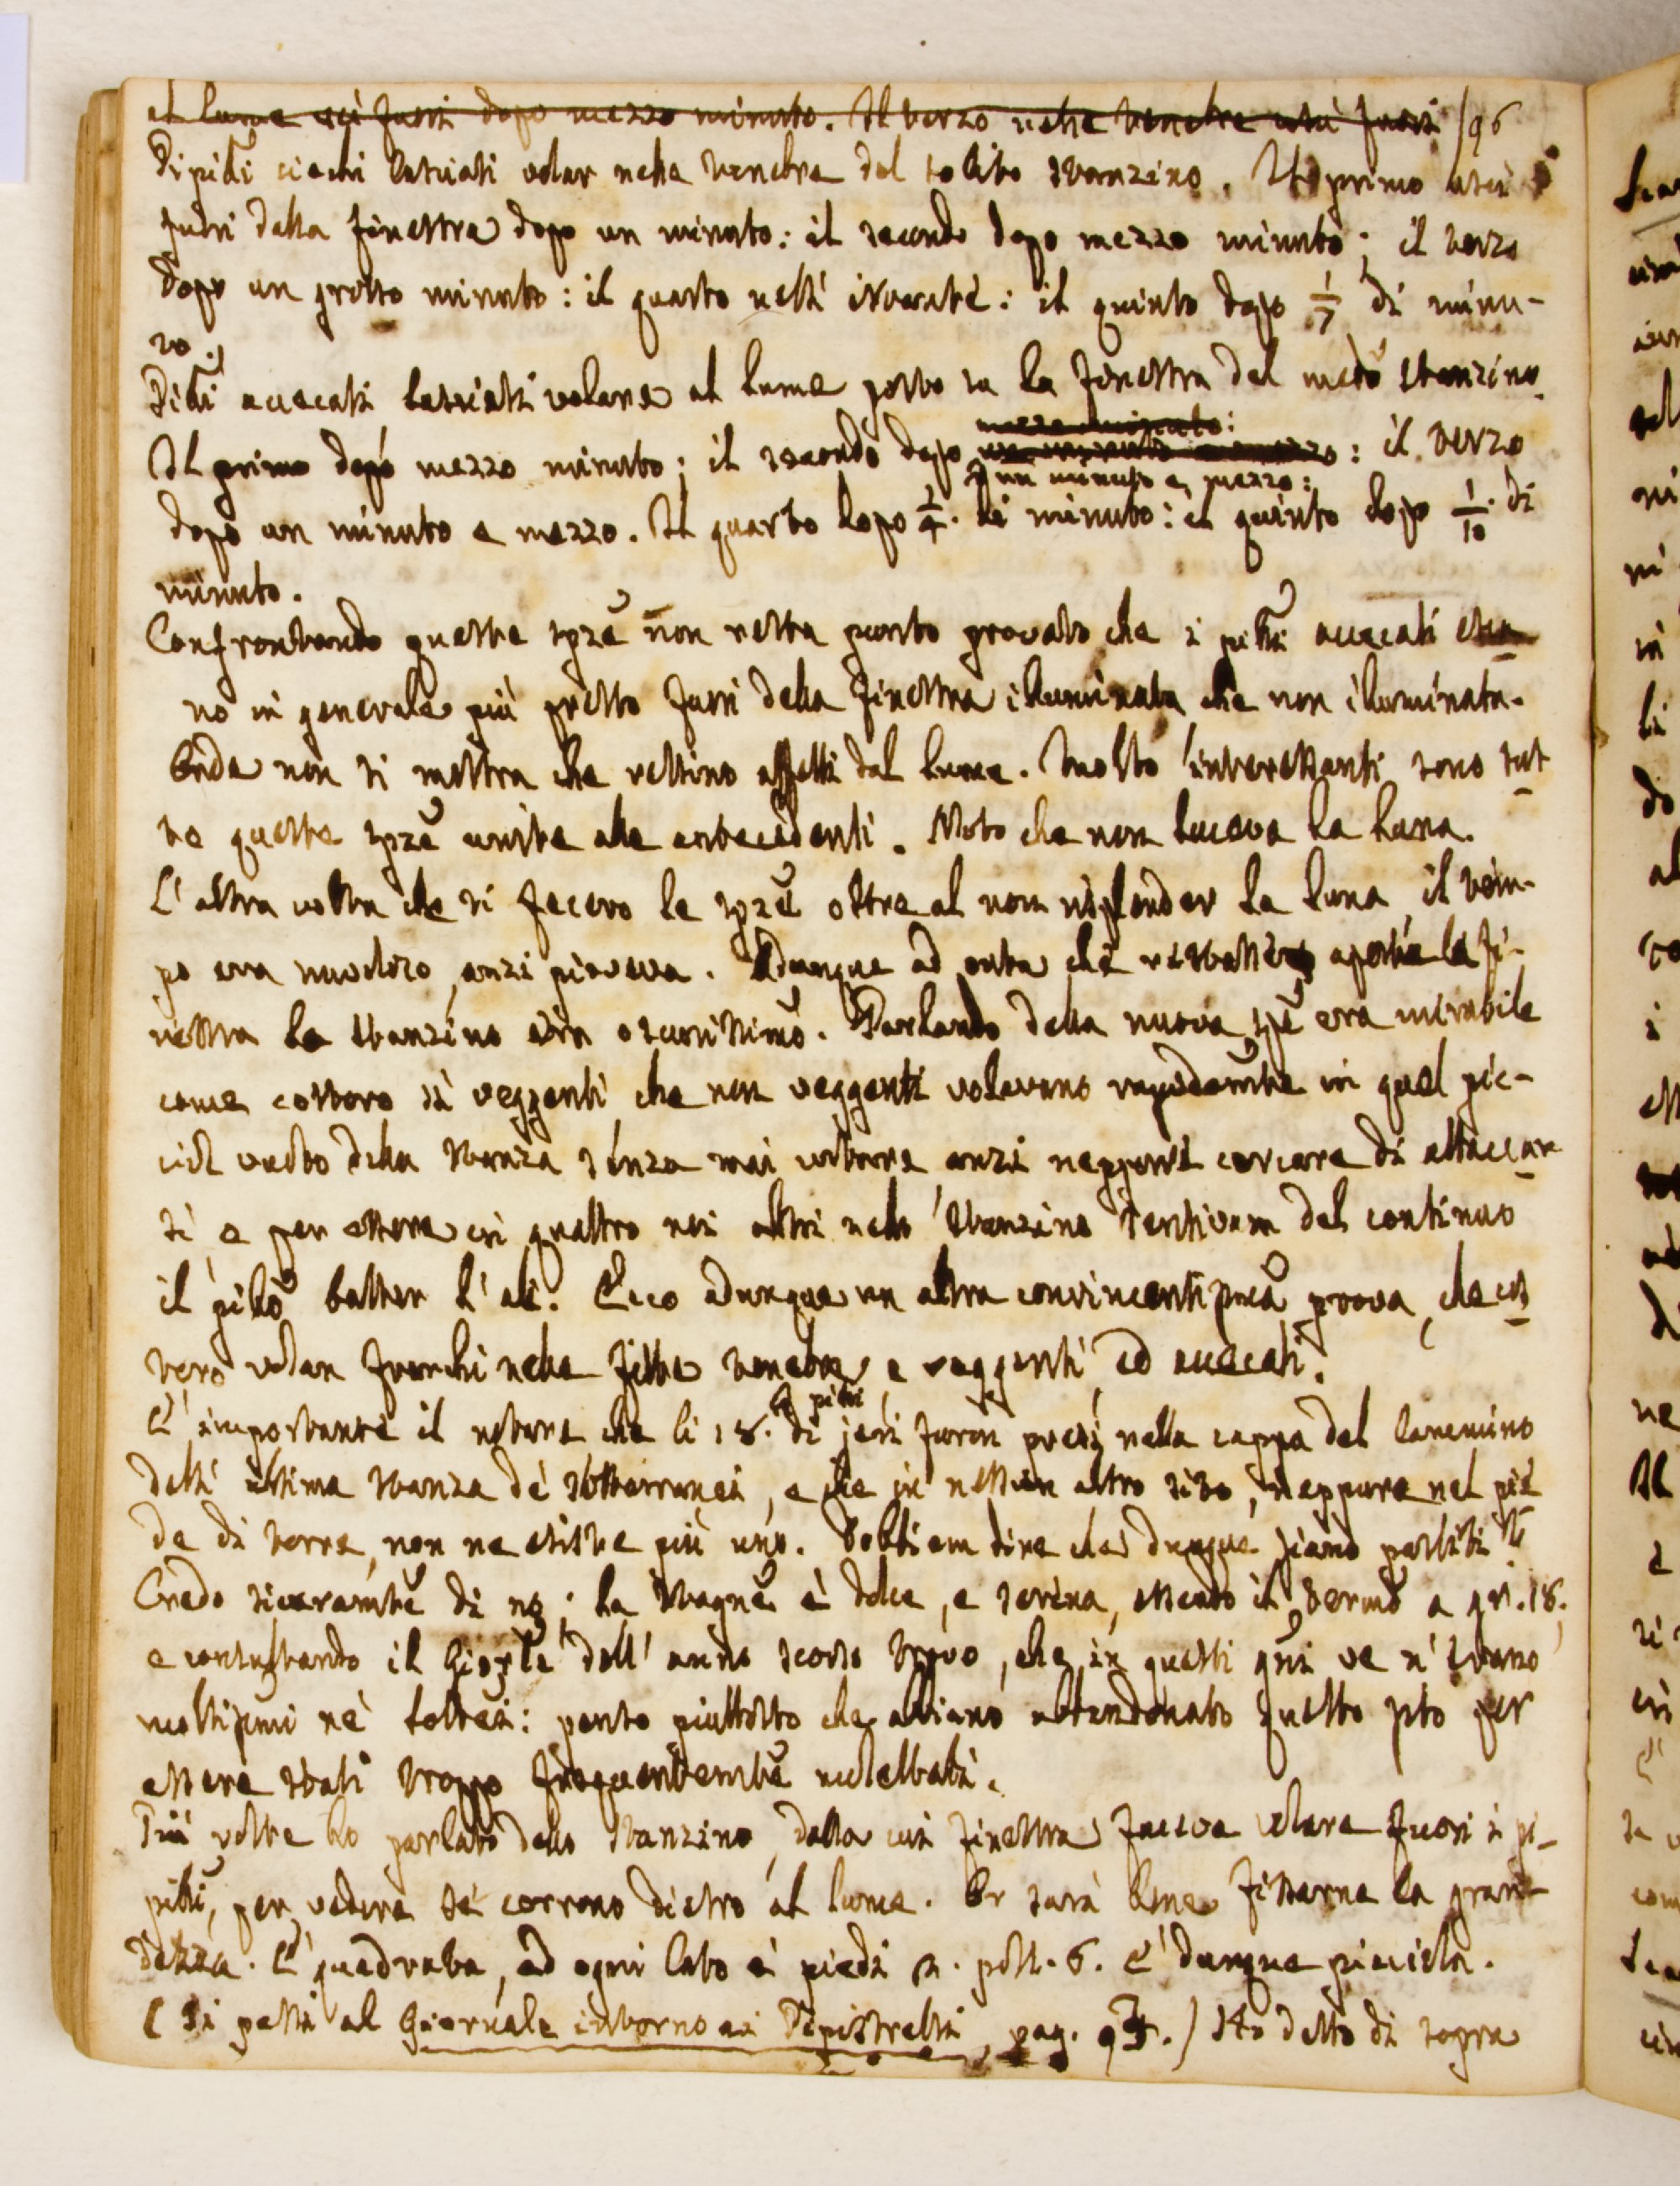 al lume uscì fuori dopo mezzo minuto. Il terzo nelle tenebre uscì fuori 96
Pip̃lli ciechi lasciati volar nelle tenebre del solito stanzino. Il primo uscì
fuori della finestra dopo un minuto: il secondo dopo mezzo minuto; il terzo
dopo un grosso minuto: il quarto nell' istante: il quinto dopo 1/7 di minu-
to.
Pip̃lli accecati lasciati volare al lume posto su la finestra del medõ stanzino.
mezzo minuto:
Il primo dopo mezzo minuto; il secondo dopo un minuto e mezzo: il terzo
un minuto e mezzo:
dopo un minuto e mezzo. Il quarto dopo 1/4. di minuto: il quinto dopo 1/10. di
minuto.
Confrontando queste spzẽ non resta punto provato che i pip̃lli accecati esca-
no in generale più presto fuori della finestra illuminata che non illuminata.
Onde non si mostra che restino affetti dal lume. Molto interessanti sono tut-
te queste spzẽ unite alle antecedenti. Noto che non luceva la luna.
L' altra volta che si fecero le spzẽ oltre al non risplender la luna, il tem-
po era nuvoloso, anzi pioveva. Adunque ad onta che restasse aperta la fi-
nestra lo stanzino era oscurissimo. Parlando della nuova spẽ era mirabile
come costoro sì veggenti che non veggenti volavano rapidam̃te in quel pic-
ciol vuoto della stanza senza mai urtare anzi neppure cercare di attaccar-
si e per essere in quattro noi altri nello stanzino sentivam del continuo
il pip̃llo batter l' ali. Ecco adunque un altra convincentissima prova, che cos-
toro volan franchi nelle fitte tenebre, e veggenti, ed accecati.
pip̃lli
E' importante il notare che li 18. di jeri furon presi nella cappa del caminino
dell' ultima stanza de' sotterranei, e che in nessun altro sito, neppure nel pie-
de di torre, non ne esiste più uno. Dobbiam dire che dunque siano partiti?
Credo sicuram̃te di no; la stagñe è dolce, e serena, essendo il termõ a gr. 18.
e consultando il Giorle dell' anno scorso trovo, che in questi gni ve n' erano
moltissimi ne' sotterei: penso piuttosto che abbiano abbandonato questo sito per
essere stati troppo frequentem̃te molestati.
Più volte ho parlato dello stanzino, dalla cui finestra faceva volare fuori i pi-
pilli, per vedere se corrono dietro al lume. Or sarà bene fissarne la gran-
dezza. E' quadrata, ad ogni lato è piedi 2. poll. 6. E' dunque picciola.
( Si passi al Giornale intorno ai Pipistrelli, pag. 97.) Ho detto di sopra